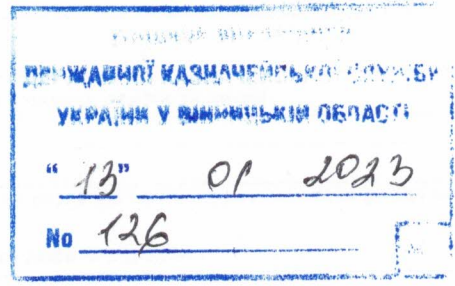 ДЕРЖАВНОЇ КАЗНАЧЕЙСЬКОЇ СЛУЖБИ
УКРАЇНИ У ВІННИЦЬКІЙ ОБЛАСТІ
“ 13 ” 01 2023
No 126